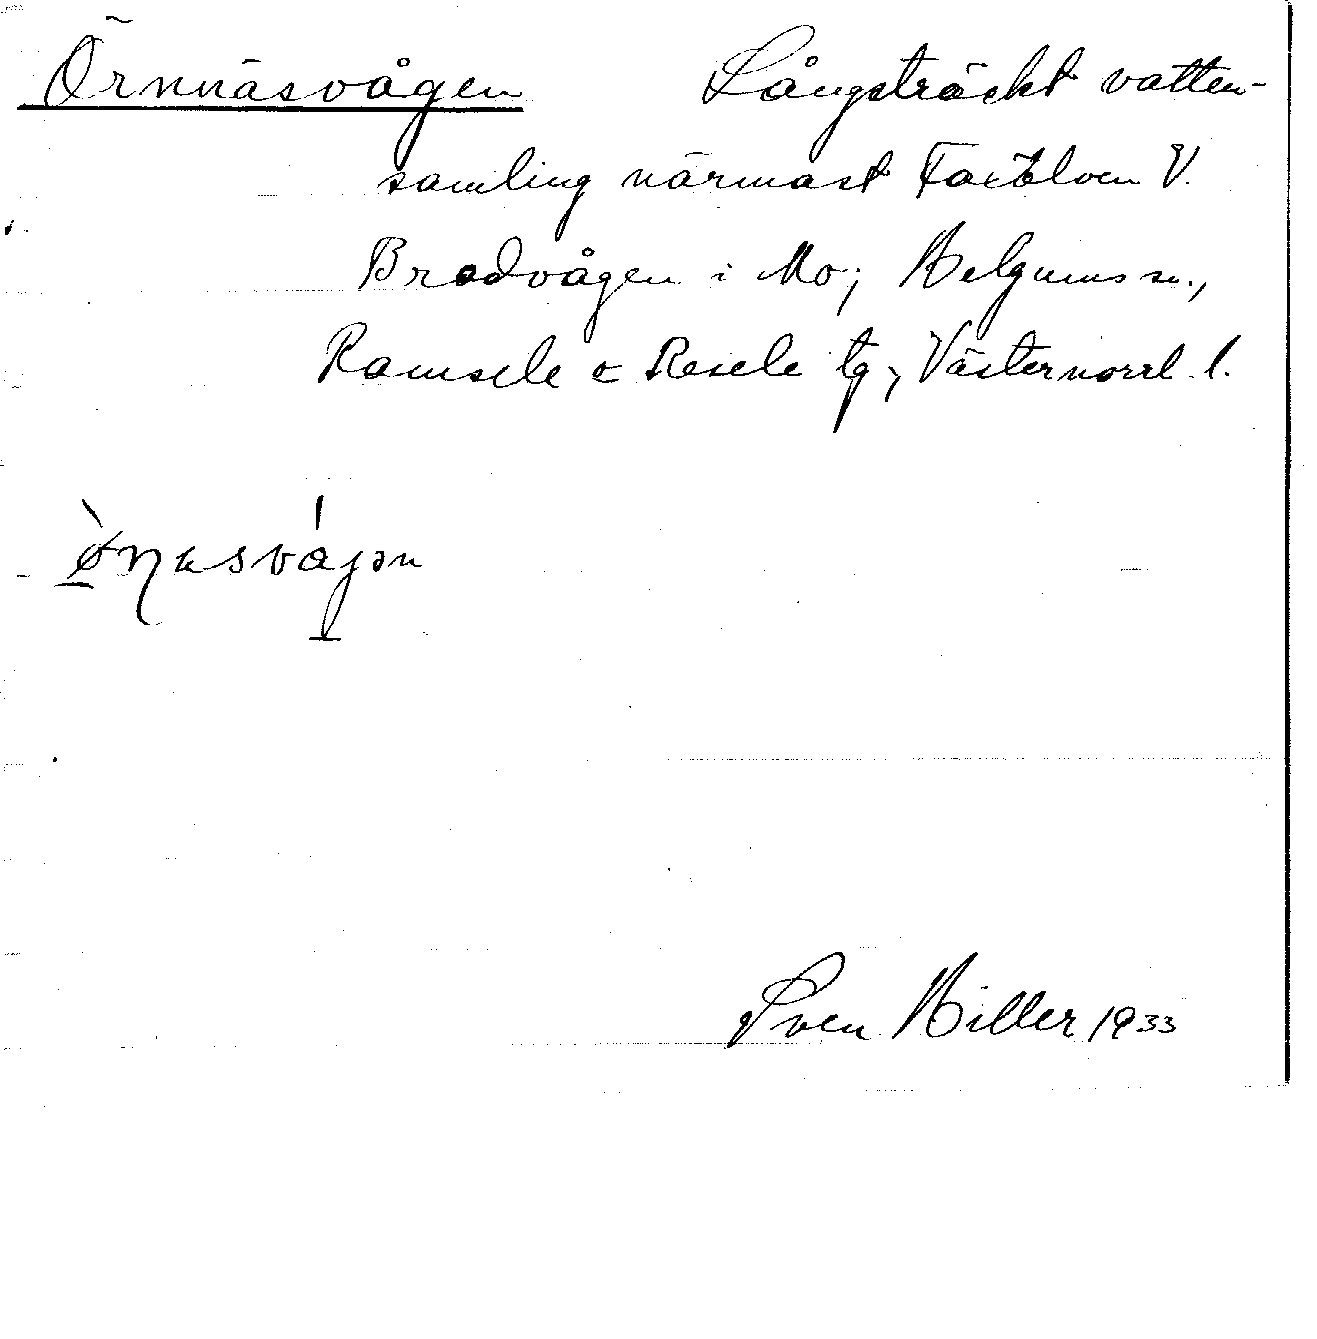 Örnnäsvågen Långsträckt vatten-
samling närmast Faxälven V.
Bredvågen i Mo; Helgums sn.,
Ramsele & Resele tg, Västernorrl. l.
Sven Hiller 1933